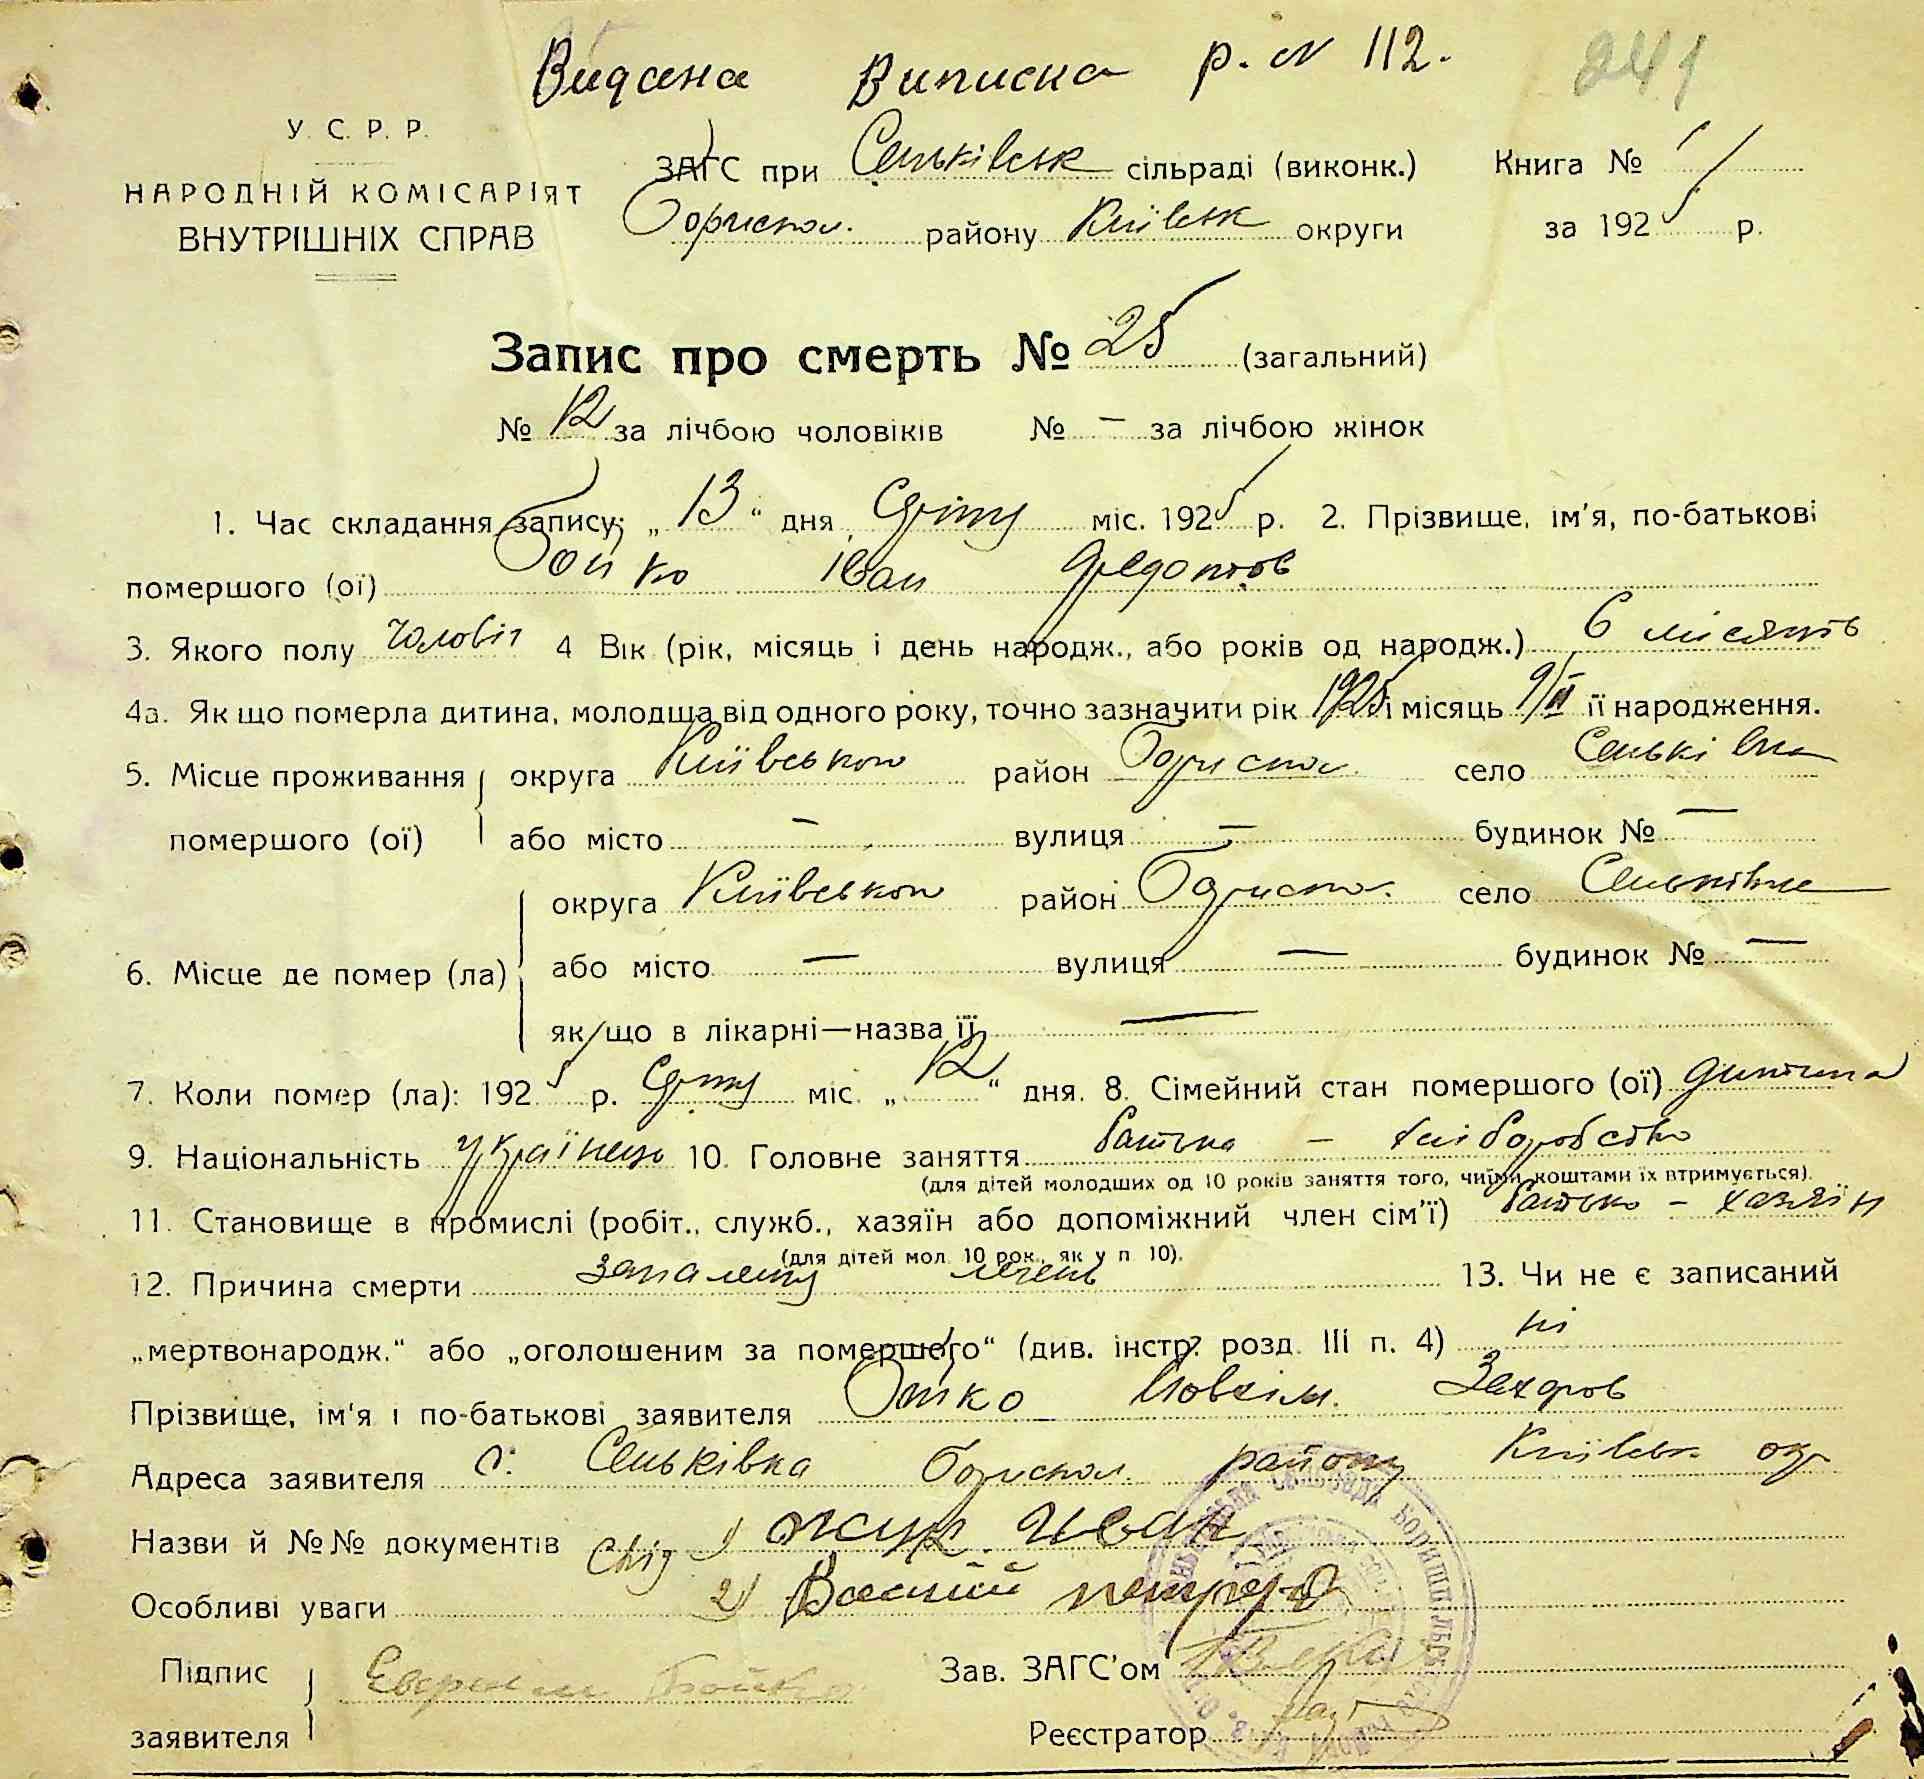 Видана Виписка р. № 112.
241
У. С. Р. Р.
НАРОДНІЙ КОМІСАРІЯТ
ВНУТРІШНІХ СПРАВ
ЗАГС при Сеньківськ сільраді (виконк.) Книга № 1
Бориспол. району Київськ округи за 1925 р.
Запис про смерть № 25 (загальний)
№ 12 за лічбою чоловіків № — за лічбою жінок
1. Час складання запису: „13“ дня Січня міс. 1925 р. 2. Прізвище, ім'я, по-батькові
помершого (ої) Бойко Іван Федотов
3. Якого полу чоловіч 4 Вік (рік, місяць і день народж., або років од народж.) 6 місяців
4а. Як що померла дитина, молодща від одного року, точно зазначити рік 1925 і місяць її народження.
5. Місце проживання округа Київською район Борispол. село Сеньківка
помершого (ої) або місто — вулиця — будинок № —
округа Київською район Борispол. село Сеньківка
6. Місце де помер (ла) або місто — вулиця — будинок № —
як/що в лікарні—назва її —
7. Коли помер (ла): 1925 р. міс. „12“ дня. 8. Сімейний стан помершого (ої) дитина
9. Національність українець 10. Головне заняття батька — хліборобство
(для дітей молодших од 10 років заняття того, чиїми коштами їх втримується).
11. Становище в промислі (робіт., служб., хазяїн або допоміжний член сім'ї) батько — хазяїн
(для дітей мол. 10 рок., як у п 10).
12. Причина смерти запалення легень 13. Чи не є записаний
„мертвонародж.“ або „оголошеним за помершого“ (див. інстр. розд. III п. 4) ні
Прізвище, ім'я і по-батькові заявителя Бойко Захаров
Адреса заявителя с. Сеньківка Бориспол. району Київськ окр
Назви й №№ документів Свід 1) Жук Иван
Особливі уваги 2) Василій
Підпис
заявителя Бойко
Зав. ЗАГС'ом
Реєстратор